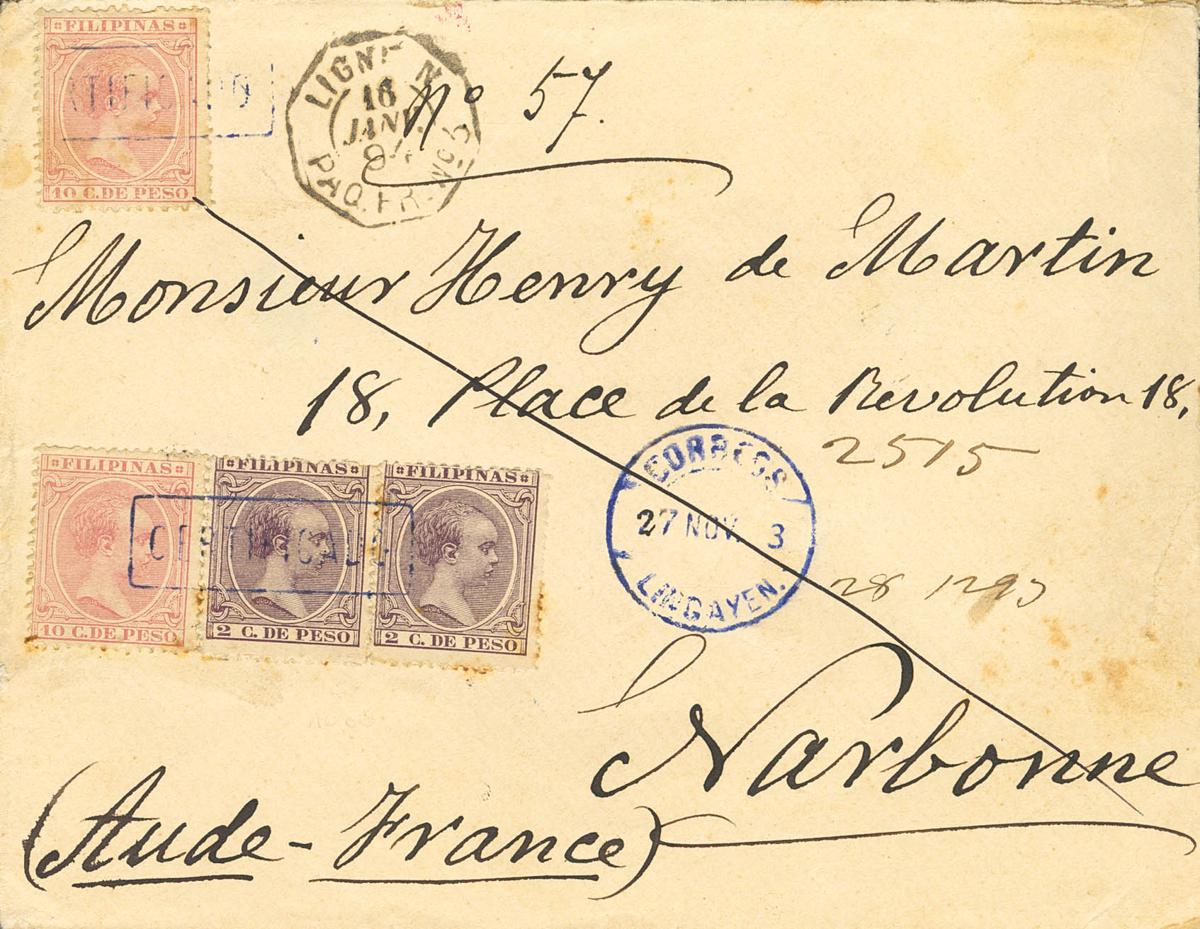 FILIPINAS
10 C. DE PESO
LIGNE N
16
JANV.
94
PAQ. FR. Nº 3
Nº 57.
Monsieur Henry de Martin
18, Place de la Revolution 18,
2515
FILIPINAS
10 C. DE PESO
FILIPINAS
2 C. DE PESO
FILIPINAS
2 C. DE PESO
CERTIFICADO
CORREOS
27 NOV. 3
LINGAYEN.
28
Narbonne
(Aude - France)